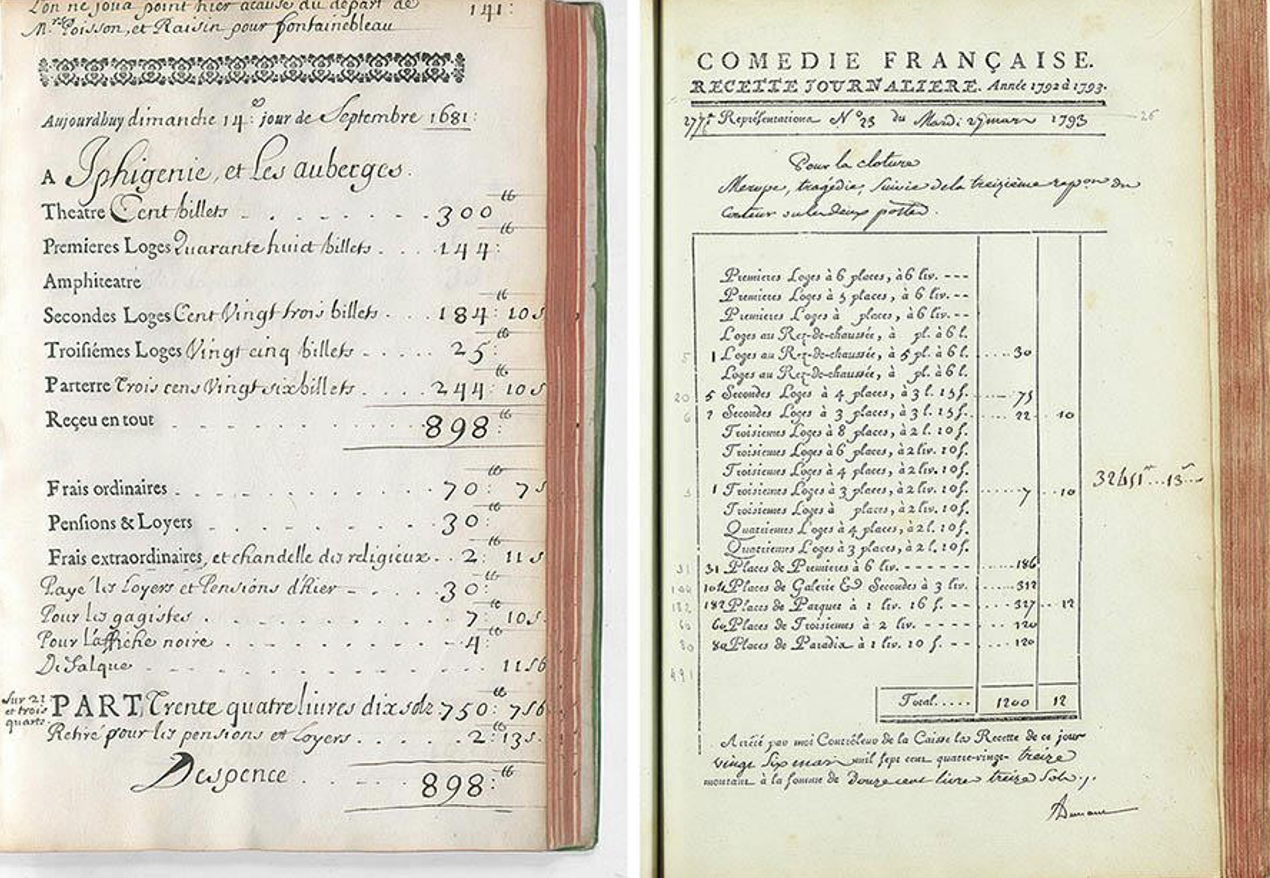 L'on ne joua point hier acause du départ de 141:
Mrs Poisson, et Raisin pour fontainebleau
Aujourdhuy dimanche 14e jour de Septembre 1681:
A Iphigenie, et Les auberges.
Theatre Cent billets . . . . . . 300 tt
Premieres Loges Quarante huict billets . . . . 144: tt
Amphiteatre
Secondes Loges Cent Vingt trois billets . . . 184: tt 10 s
Troisiémes Loges Vingt cinq billets . . . . 25: tt
Parterre Trois cens Vingt six billets . . . . 244: tt 10 s
Reçeu en tout . . . . . . . . 898 tt
Frais ordinaires . . . . . . . . 70: tt 7 s
Pensions & Loyers . . . . . . . 30: tt
Frais extraordinaires, et chandelle des religieux . . 2: tt 11 s
Payé les Loyers et Pensions d'hier . . . . 30: tt
Pour les gagistes . . . . . . . 7: tt 10 s
Pour l'affiche noire . . . . . . . 4: tt
De Salque . . . . . . . . . 11 s 6
Sur 21
et trois
quarts.
PART Trente quatre livres dix solz 750: tt 7 s 6
Retiré pour les pensions et Loyers . . . . . 2: tt 13 s.
Despence . . . . 898: tt
COMEDIE FRANÇAISE.
RECETTE JOURNALIERE. Année 1792 à 1793.
Représentations N° 23 du Mardi mars 1793 26
Pour la cloture
Merope, tragédie, Suivie de la
Premieres Loges à 6 places, à 6 liv. - - -
Premieres Loges à 5 places, à 6 liv. - -
Premieres Loges à places, à 6 liv. - -
Loges au Rez-de-chaussée, à pl. à 6 l.
5 1 Loges au Rez-de-chaussée, à 5 pl. à 6 l. ..... 30
Loges au Rez-de-chaussée, à pl. à 6 l.
20 5 Secondes Loges à 4 places, à 3 l. 15 s. ..... 75
6 2 Secondes Loges à 3 places, à 3 l. 15 s. ..... 22 .. 10
Troisiemes Loges à 8 places, à 2 l. 10 s.
Troisiemes Loges à 6 places, à 2 liv. 10 s.
Troisiemes Loges à 4 places, à 2 liv. 10 s.
3 1 Troisiemes Loges à 3 places, à 2 liv. 10 s. ...... 7 ... 10
Troisiemes Loges à places, à 2 liv. 10 s.
Quatriemes Loges à 4 places, à 2 l. 10 s.
Quatriemes Loges à 3 places, à 2 l. 10 s.
31 31 Places de Premieres à 6 liv. - - - - - - ..... 186
104 104 Places de Galerie & Secondes à 3 liv. ..... 312
182 182 Places de Parquet à 1 liv. 16 s. - - - ..... 327 ... 12
60 60 Places de Troisiemes à 2 liv. - - - - - ..... 120
80 80 Places de Paradis à 1 liv. 10 s. - - - ..... 120
491
Total..... 1200 12
Arrêté par moi Contrôleur de la Caisse la Recette de ce jour
vingt Six mars mil sept cent quatre-vingt- treize
montant à la somme de douze cent livre treize Sols.